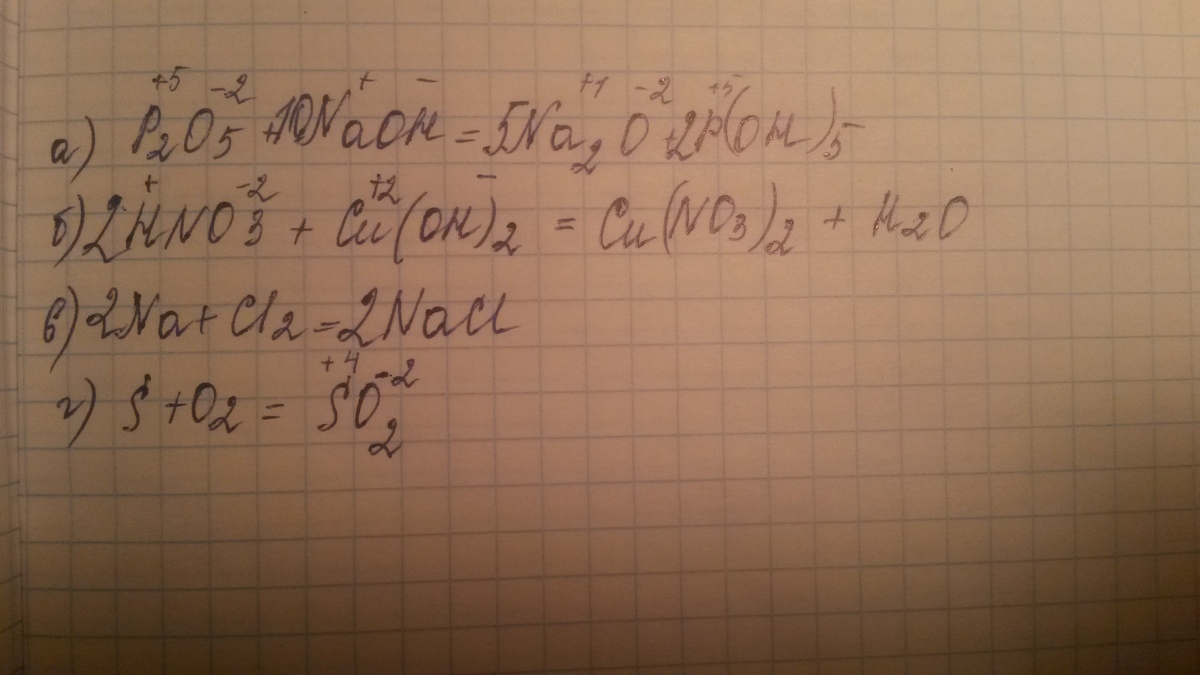 а) P₂⁺⁵O₅⁻² + 10Na⁺OH⁻ = 5Na₂⁺¹O⁻² + 2P⁺⁵(OH)₅
б) 2H⁺NO₃⁻² + Cu⁺²(OH)₂⁻ = Cu(NO₃)₂ + H₂O
в) 2Na + Cl₂ = 2NaCl
г) S + O₂ = S⁺⁴O₂⁻²